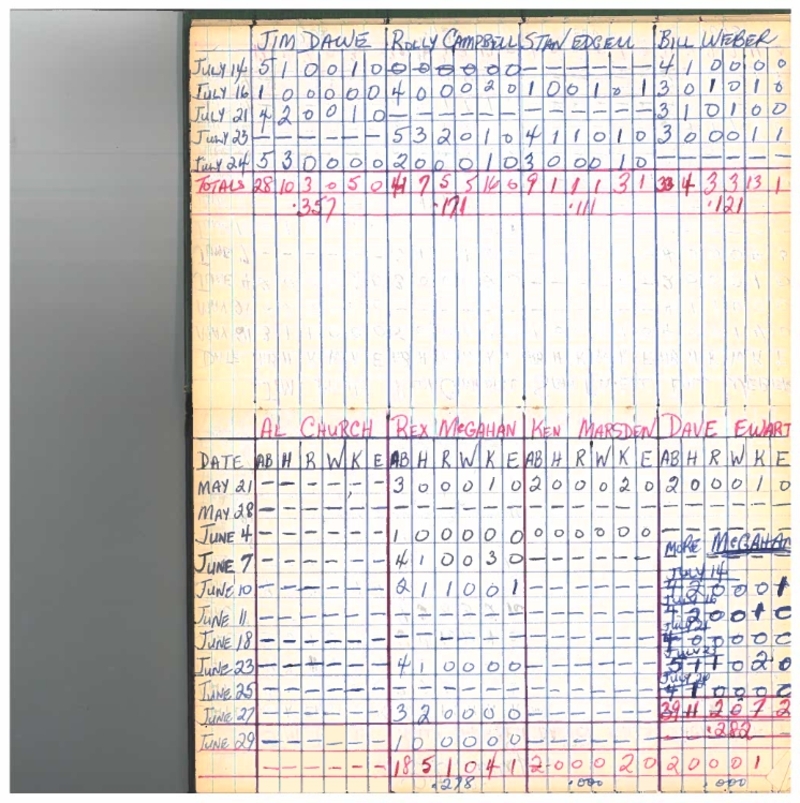 JIM DAWE ROLLY CAMPBELL STAN EDGELL BILL WEBER
JULY 14 5 1 0 0 1 0 0 0 0 0 0 0 - - - - - - 4 1 0 0 0 0
JULY 16 1 0 0 0 0 0 4 0 0 0 2 0 1 0 0 1 0 1 3 0 1 0 1 0
JULY 21 4 2 0 0 1 0 3 1 0 1 0 0
JULY 23 - - - - - - 5 3 2 0 1 0 4 1 1 0 1 0 3 0 0 0 1 1
JULY 24 5 3 0 0 0 0 2 0 0 0 1 0 3 0 0 0 1 0 - - - - - -
TOTALS 28 10 3 0 5 0 41 7 5 5 16 0 9 1 1 1 3 1 33 4 3 3 13 1
.357 .171 .111 .121
AL CHURCH REX McGAHAN KEN MARSDEN DAVE EWART
DATE AB H R W K E AB H R W K E AB H R W K E AB H R W K E
MAY 21 - - - - - - 3 0 0 0 1 0 2 0 0 0 2 0 2 0 0 0 1 0
MAY 28 - - - - - - - - - - - - - - - - - - - - - - - -
JUNE 4 - - - - - - 1 0 0 0 0 0 0 0 0 0 0 0 - - - - - -
MORE McGAHAN
JUNE 7 - - - - - - 4 1 0 0 3 0 - - - - - -
JULY 14
JUNE 10 - - - - - - 2 1 1 0 0 1 - - - - - - 2 0 0 0 1
JULY 16
JUNE 11 - - - - - - - - - - - - - - - - - - 4 2 0 0 1 0
JULY 21
JUNE 18 - - - - - - - - - - - - - - - - - - 4 0 0 0 0 0
JULY 23
JUNE 23 - - - - - - 4 1 0 0 0 0 - - - - - - 5 1 1 0 2 0
JUNE 25 - - - - - - - - - - - - - - - - - - 4 1 0 0 0 0
JUNE 27 - - - - - - 3 2 0 0 0 0 - - - - - - 39 11 2 0 7 2
.282
JUNE 29 - - - - - - 1 0 0 0 0 0 - - - - - -
- - - - - - 18 5 1 0 4 1 2 0 0 0 2 0 2 0 0 0 1
.278 .000 .000